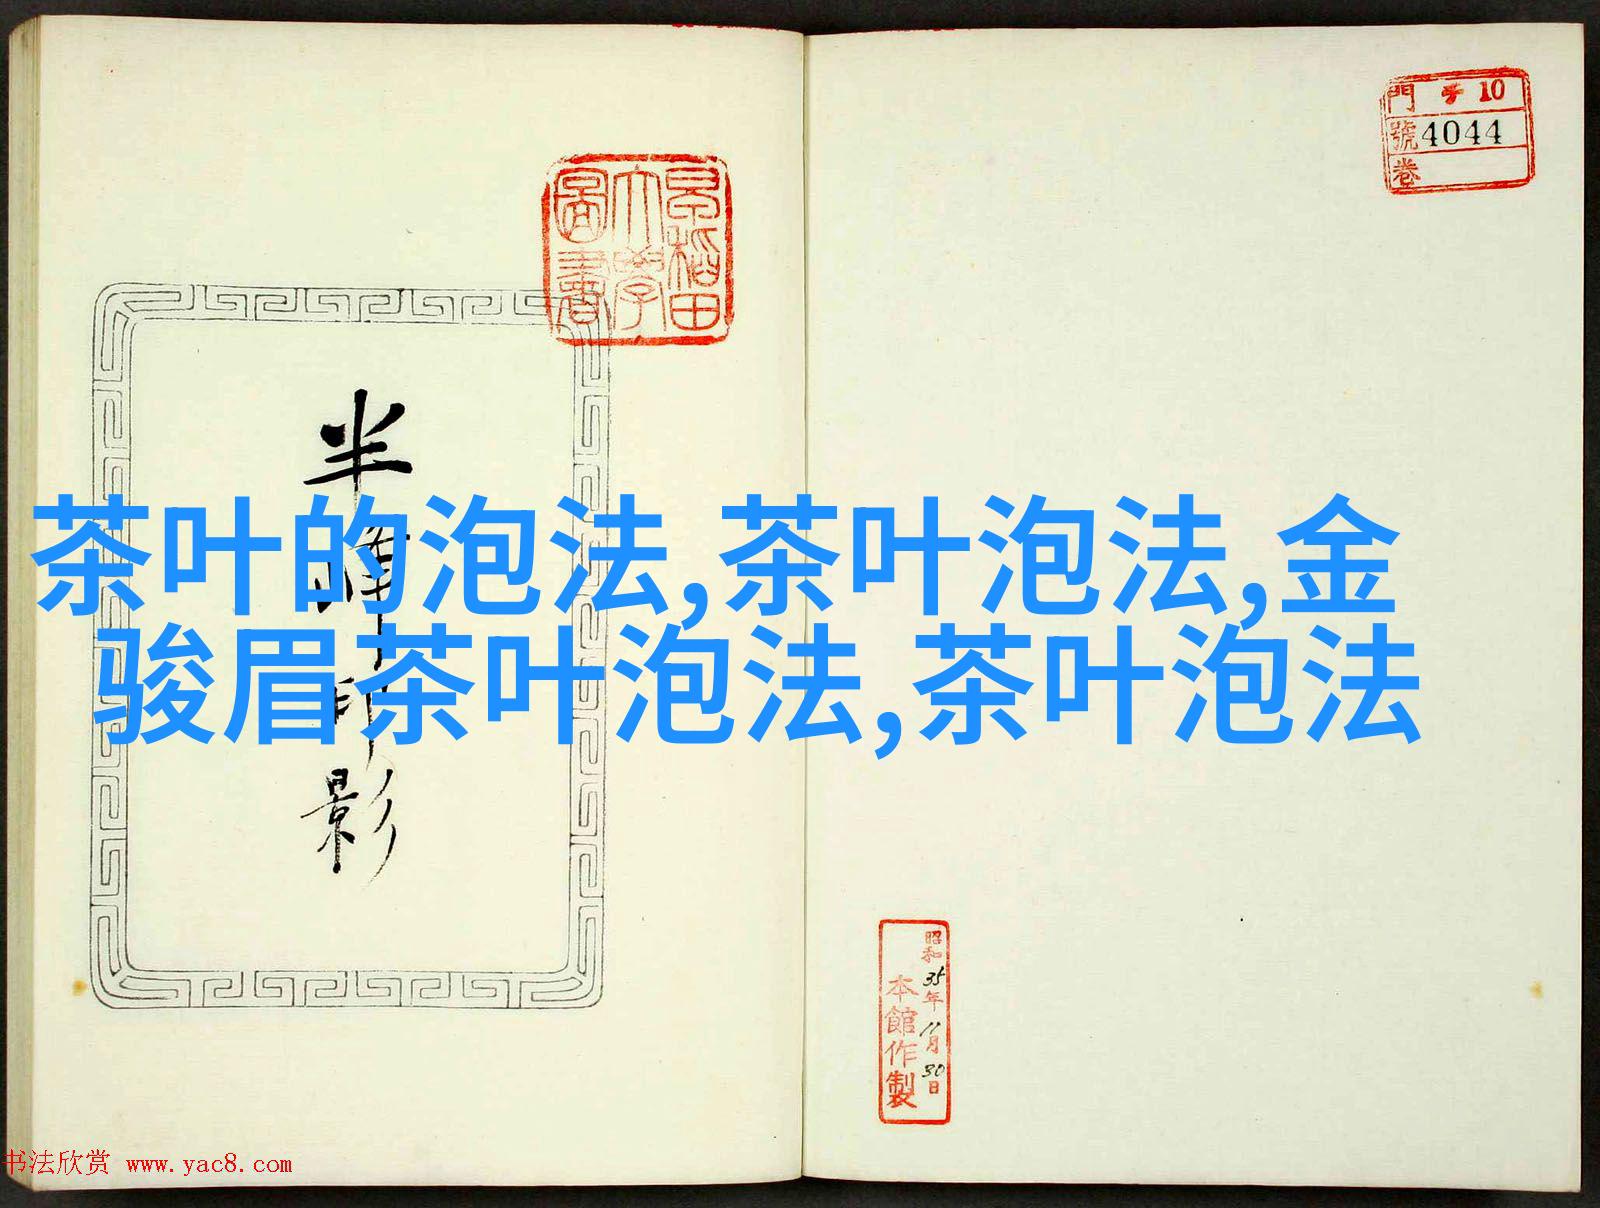 門 チ 10
號 4044
卷
早稻田
大學
圖書
半 印影
茶叶的泡法,茶叶泡法,金
骏眉茶叶泡法,茶叶泡法
昭和35年11月30日
本館作製
书法欣赏 www.yac8.com